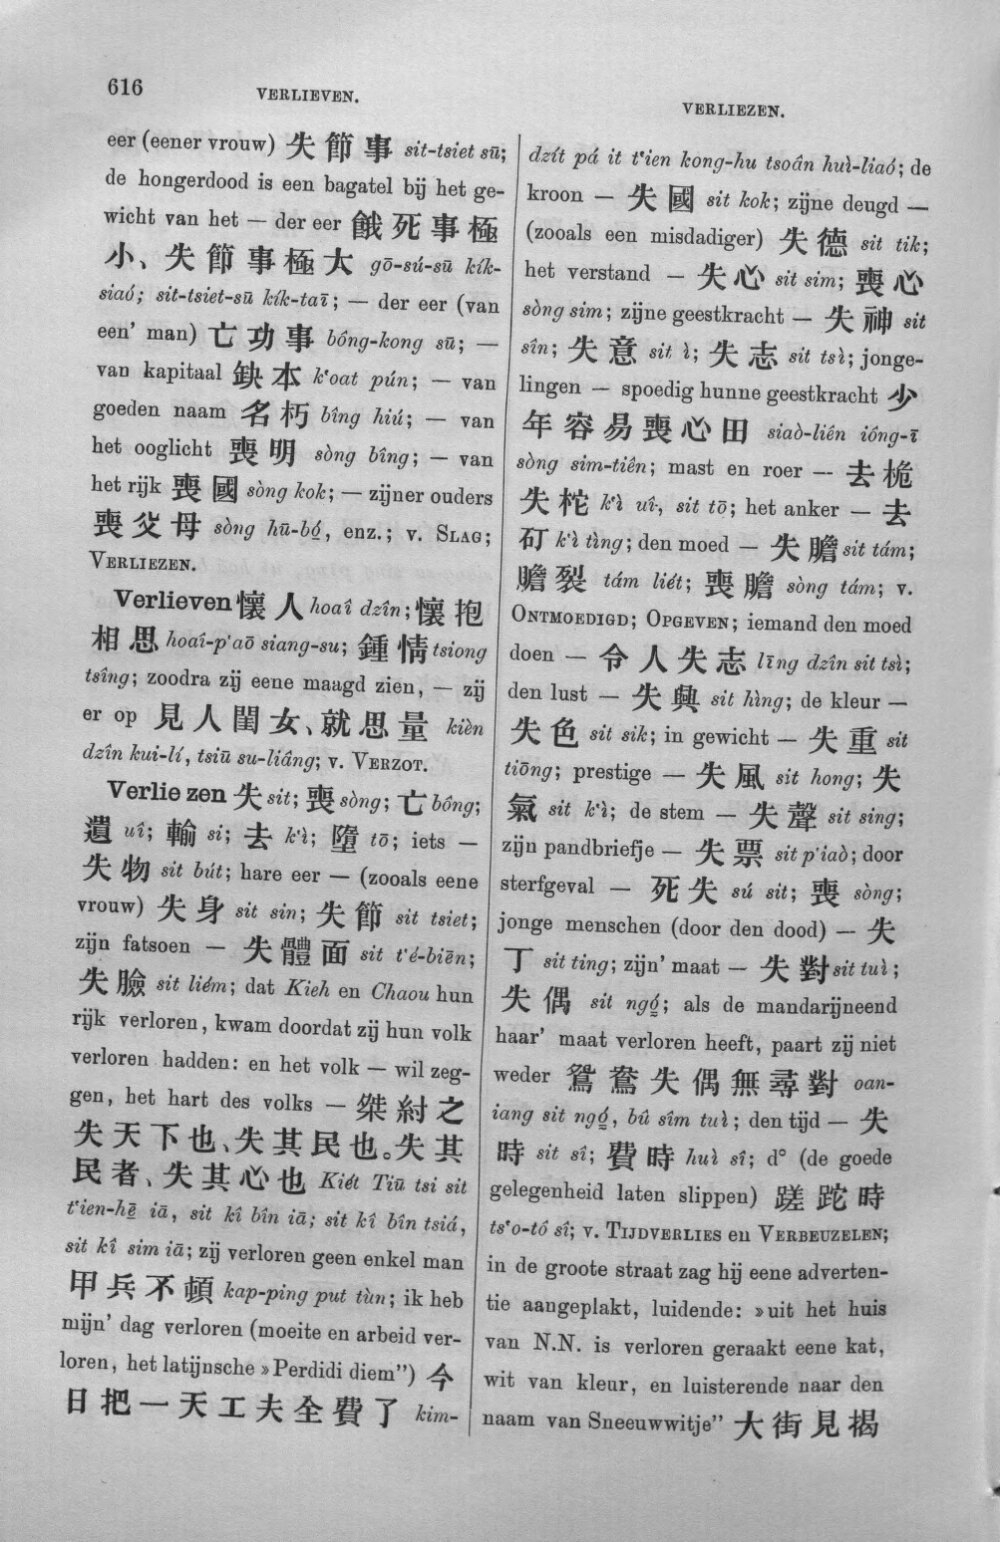 616
VERLIEVEN.
VERLIEZEN.
eer (eener vrouw) 失節事 sit-tsiet sū;
de hongerdood is een bagatel bij het ge-
wicht van het — der eer 餓死事極
小、失節事極大 gō-sú-sū kík-
siaó; sit-tsiet-sū kík-taī; — der eer (van
een' man) 亡功事 bông-kong sū; —
van kapitaal 缺本 k‘oat pún; — van
goeden naam 名朽 bîng hiú; — van
het ooglicht 喪明 sòng bîng; — van
het rijk 喪國 sòng kok; — zijner ouders
喪父母 sòng hū-bó, enz.; v. SLAG;
VERLIEZEN.
Verlieven 懷人 hoaî dzîn; 懷抱
相思 hoaî-p‘aō siang-su; 鍾情 tsiong
tsîng; zoodra zij eene maagd zien, — zij
er op 見人閨女、就思量 kièn
dzîn kui-lí, tsiū su-liâng; v. VERZOT.
Verliezen 失 sit; 喪 sòng; 亡 bông;
遺 uî; 輸 si; 去 k‘ì; 墮 tō; iets —
失物 sit bút; hare eer — (zooals eene
vrouw) 失身 sit sin; 失節 sit tsiet;
zijn fatsoen — 失體面 sit t‘é-biēn;
失臉 sit liém; dat Kieh en Chaou hun
rijk verloren, kwam doordat zij hun volk
verloren hadden: en het volk — wil zeg-
gen, het hart des volks — 桀紂之
失天下也、失其民也。失其
民者、失其心也 Kiét Tiū tsi sit
t‘ien-hē iā, sit kî bîn iā; sit kî bîn tsiá,
sit kî sim iā; zij verloren geen enkel man
甲兵不頓 kap-ping put tùn; ik heb
mijn' dag verloren (moeite en arbeid ver-
loren, het latijnsche »Perdidi diem") 今
日把一天工夫全費了 kim-
dzít pá it t‘ien kong-hu tsoân huì-liaó; de
kroon — 失國 sit kok; zijne deugd —
(zooals een misdadiger) 失德 sit tik;
het verstand — 失心 sit sim; 喪心
sòng sim; zijne geestkracht — 失神 sit
sîn; 失意 sit ì; 失志 sit tsì; jonge-
lingen — spoedig hunne geestkracht 少
年容易喪心田 siaò-liên iông-ī
sòng sim-tiên; mast en roer — 去桅
失柁 k‘ì uî, sit tō; het anker — 去
矴 k‘ì tìng; den moed — 失膽 sit tám;
膽裂 tám liét; 喪膽 sòng tám; v.
ONTMOEDIGD; OPGEVEN; iemand den moed
doen — 令人失志 līng dzîn sit tsì;
den lust — 失興 sit hìng; de kleur —
失色 sit sik; in gewicht — 失重 sit
tiōng; prestige — 失風 sit hong; 失
氣 sit k‘ì; de stem — 失聲 sit sing;
zijn pandbriefje — 失票 sit p‘iaò; door
sterfgeval — 死失 sú sit; 喪 sòng;
jonge menschen (door den dood) — 失
丁 sit ting; zijn' maat — 失對 sit tuì;
失偶 sit ngó; als de mandarijneend
haar' maat verloren heeft, paart zij niet
weder 鴛鴦失偶無尋對 oan-
iang sit ngó, bû sîm tuì; den tijd — 失
時 sit sî; 費時 huì sî; d° (de goede
gelegenheid laten slippen) 蹉跎時
ts‘o-tó sî; v. TIJDVERLIES en VERBEUZELEN;
in de groote straat zag hij eene adverten-
tie aangeplakt, luidende: »uit het huis
van N.N. is verloren geraakt eene kat,
wit van kleur, en luisterende naar den
naam van Sneeuwwitje" 大街見揭